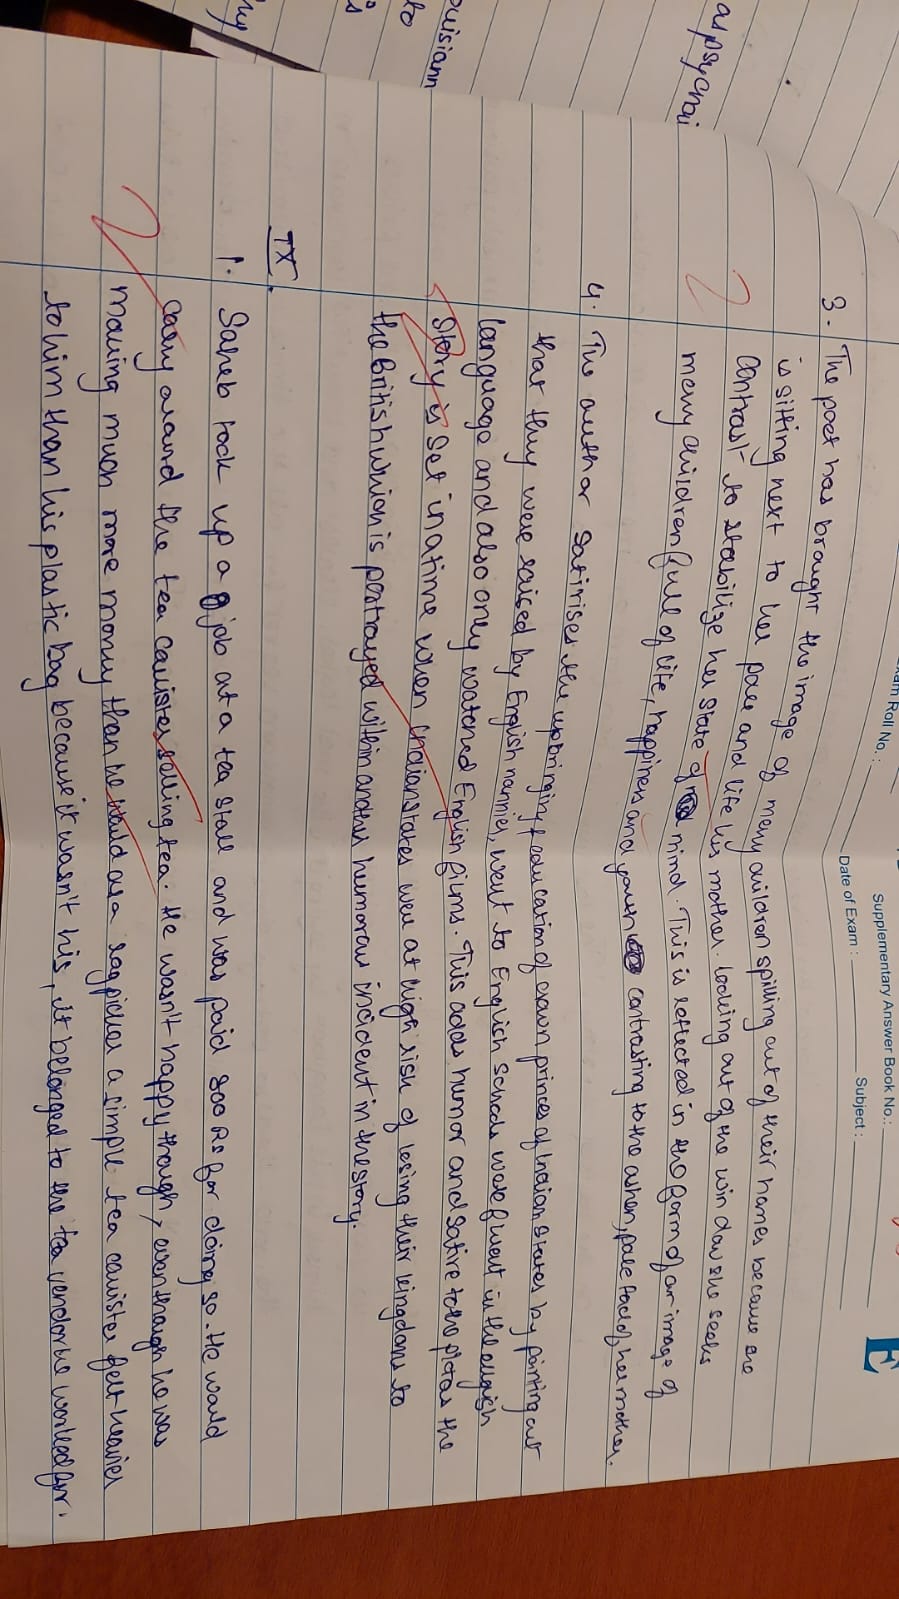 Exam Roll No. :
Supplementary Answer Book No.:
E
Date of Exam :
Subject :
3. The poet has brought the image of merry children spilling out of their homes because she
is sitting next to her pale and life less mother. Looking out of the window she seeks
contrast to stabilize her state of mind. This is reflected in the form of an image of
merry children full of life, happiness and youth contrasting to the ashen, pale face of her mother.
2
4. The author satirises the upbringing & education of crown princes of Indian States by pointing out
that they were raised by English nannies, went to English schools were fluent in the english
language and also only watched English films. This adds humor and satire to the plot as the
Story is set in a time when Indian states were at high risk of losing their kingdoms to
the British which is portrayed within another humorous incident in the story.
2
IX.
1. Saheb took up a job at a tea stall and was paid 800 Rs for doing so. He would
carry around the tea canister selling tea. He wasn't happy though, even though he was
making much more money than he would as a ragpicker a simple tea canister felt heavier
to him than his plastic bag because it wasn't his, it belonged to the tea vendor he worked for.
2
as psychai
ouisiann
to